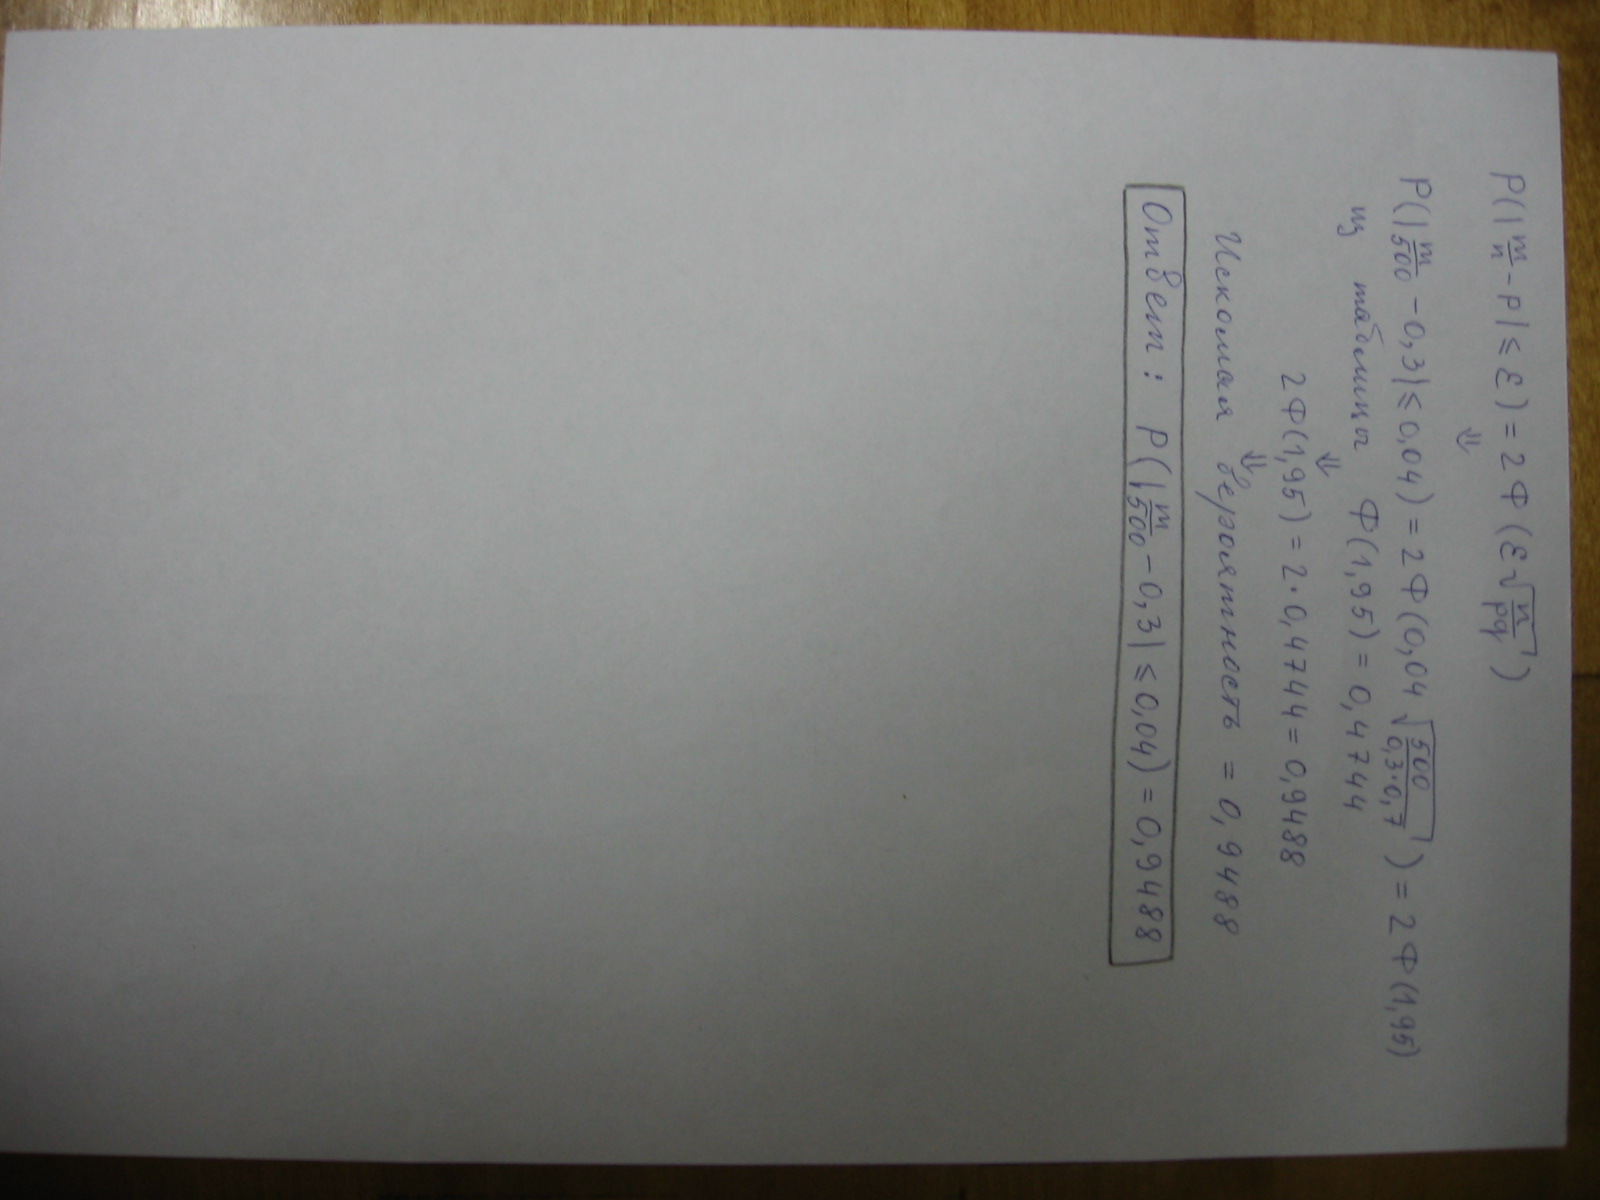 P(|m/n - p| ≤ ε) = 2Ф(ε√(n/pq))
⇓
P(|m/500 - 0,3| ≤ 0,04) = 2Ф(0,04 √(500/0,3·0,7)) = 2Ф(1,95)
из таблицы Ф(1,95) = 0,4744
⇓
2Ф(1,95) = 2·0,4744 = 0,9488
⇓
Искомая вероятность = 0,9488
Ответ: P(|m/500 - 0,3| ≤ 0,04) = 0,9488